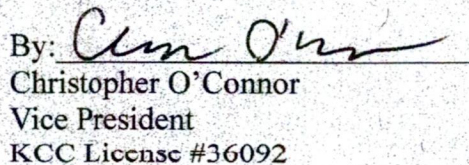 By:
Christopher O'Connor
Vice President
KCC License #36092